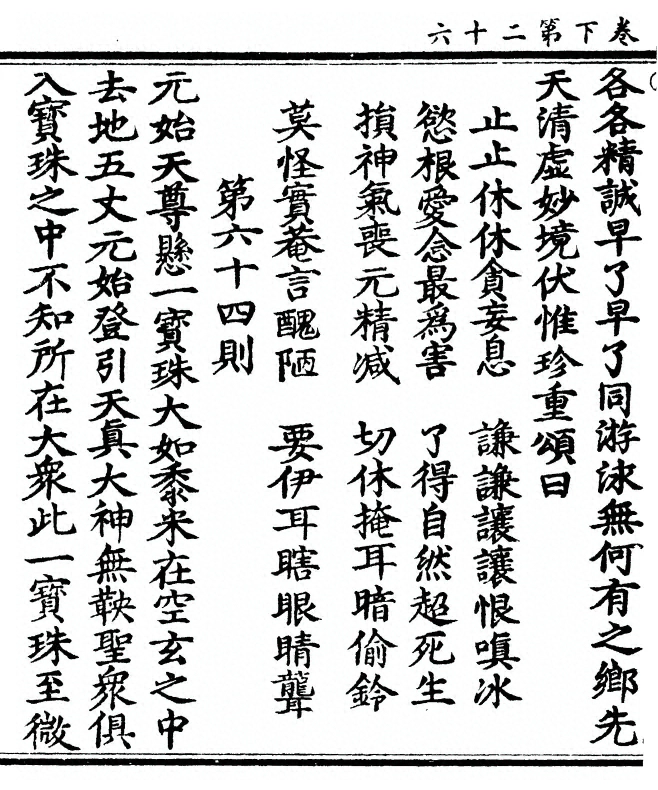 卷下第二十六
各各精誠早了早了同游泳無何有之鄉先
天清虛妙境伏惟珍重頌曰
止止休休貪妄息 謙謙讓讓恨嗔冰
慾根愛念最爲害 了得自然超死生
損神氣喪元精减 切休掩耳暗偷鈴
莫怪實菴言醜陋 要伊耳瞎眼睛聾
第六十四則
元始天尊懸一寶珠大如黍米在空玄之中
去地五丈元始登引天眞大神無鞅聖衆俱
入寶珠之中不知所在大衆此一寶珠至微